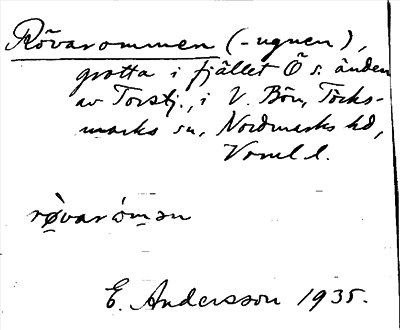 Rövarommen (-ugnen),
grotta i fjället Ö s. änden
av Torstj., i V. Bön, Töcks-
marks sn, Nordmarks hd,
Vrml l.
rø̀varómən
E. Andersson 1935.